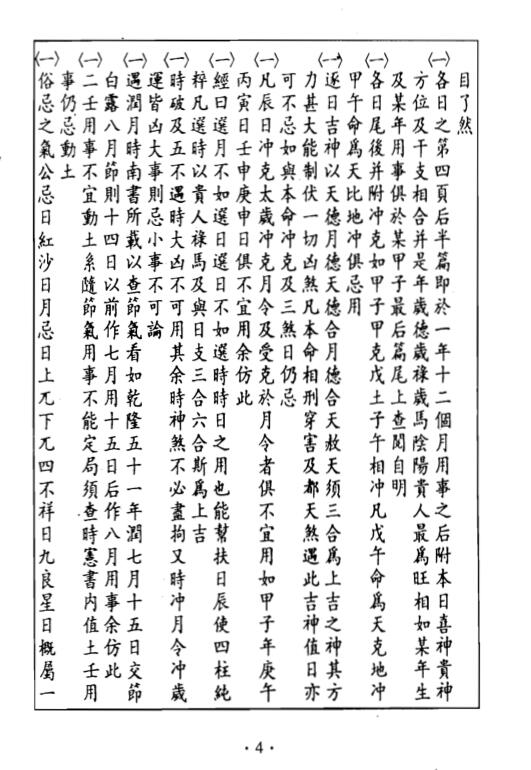 目了然
㈠各日之第四頁后半篇即於一年十二個月用事之后附本日喜神貴神
方位及干支相合并是年歲德歲祿歲馬陰陽貴人最爲旺相如某年生
及某年用事俱於某甲子最后篇尾上查閱自明
㈠各日尾後并附冲克如甲子甲克戊土子午相冲凡戊午命爲天克地冲
甲午命爲天比地冲俱忌用
㈠逐日吉神以天德月德天德合月德合天赦天須三合爲上吉之神其方
力甚大能制伏一切凶煞凡本命相刑穿害及都天煞遇此吉神值日亦
可不忌如與本命冲克及三煞日仍忌
㈠凡辰日冲克太歲冲克月令及受克於月令者俱不宜用如甲子年庚午
丙寅日壬申庚申日俱不宜用余仿此
㈠經曰選月不如選日選日不如選時時日之用也能幫扶日辰使四柱純
粹凡選時以貴人祿馬及與日支三合六合斯爲上吉
㈠時破及五不遇時大凶不可用其余時神煞不必盡拘又時冲月令冲歲
運皆凶大事則忌小事不可論
㈠遇潤月時南書所載以查節氣看如乾隆五十一年潤七月十五日交節
白露八月節則十四日以前作七月用十五日后作八月用事余仿此
㈠二壬用事不宜動土系隨節氣用事不能定局須查時憲書内值土壬用
事仍忌動土
㈠俗忌之氣公忌日紅沙日月忌日上兀下兀四不祥日九良星日概屬一
·4·